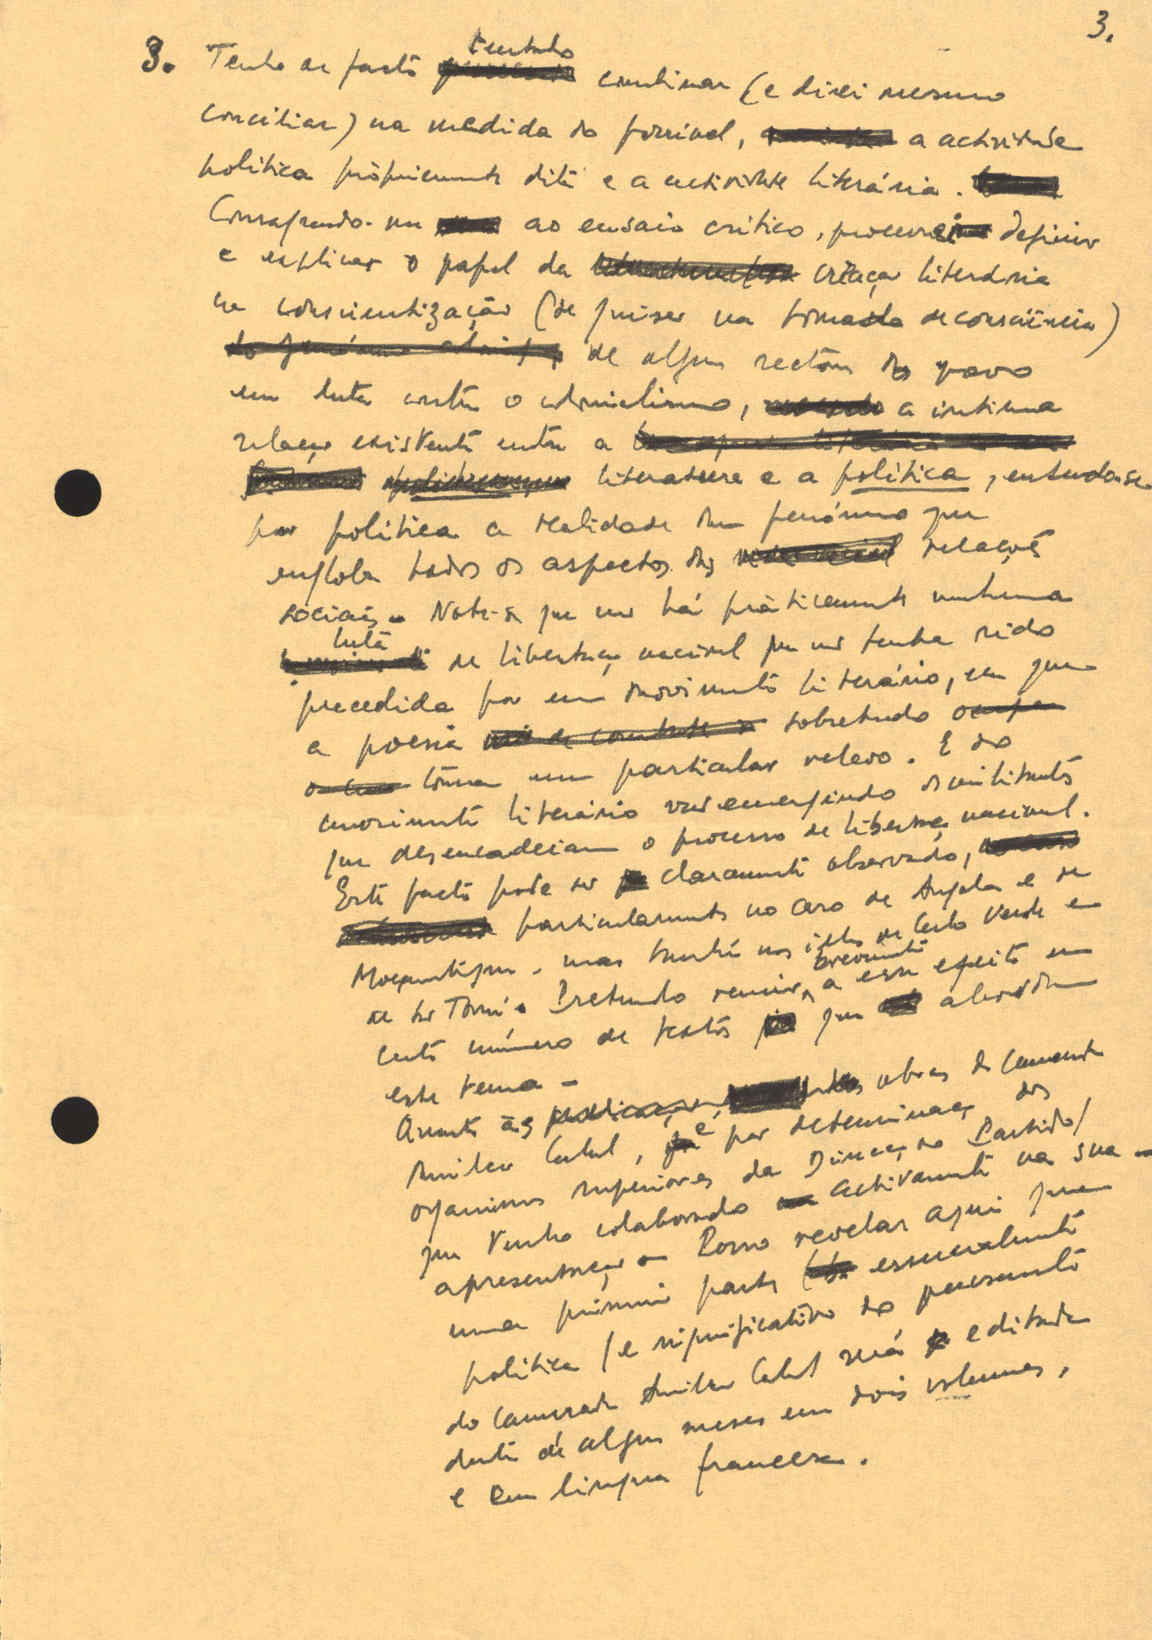 3.
3. Tenho de facto tentado combinar (e direi mesmo
conciliar) na medida do possível, a actividade
política pròpriamente dita e a actividade literária.
Consagrando-me ao ensaio crítico, procurei definir
e explicar o papel da criação literária
na conscientização (se quiser na tomada de consciência)
de alguns sectores do povo
em luta contra o colonialismo, a íntima
relação existente entre a
literatura e a política, entendendo-se
por política a realidade dum fenómeno que
engloba todos os aspectos das relações
sociais. Note-se que não há pràticamente nenhuma
luta de libertação nacional que não tenha sido
precedida por um movimento literário, em que
a poesia sobretudo
toma um particular relevo. E do
movimento literário vão emergindo os militantes
que desencadeiam o processo de libertação nacional.
Este facto pode ser claramente observado,
particularmente no caso de Angola e de
Moçambique, mas também nas ilhas de Cabo Verde e
de São Tomé. Pretendo reunir brevemente, a esse efeito um
certo número de textos que abordam
este tema.
Quanto às obras do camarada
Amílcar Cabral, é por determinação dos
organismos superiores da Direcção do Partido
que tenho colaborado activamente na sua
apresentação. Posso revelar aqui que
uma primeira parte essencialmente
política e significativa do pensamento
do camarada Amílcar Cabral será editada
dentro de alguns meses em dois volumes,
e em língua francesa.